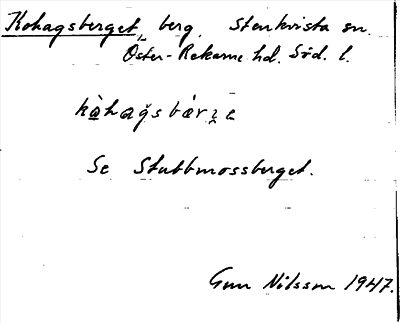 Kohagsberget, berg. Stenkvista sn.
Öster-Rekarne hd. Söd. l.
kòhağsbárʒe
Se Stubbmossberget.
Gun Nilsson 1947.